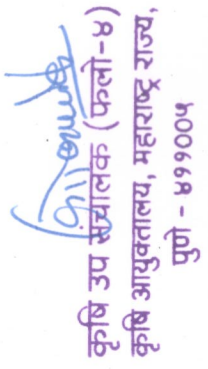 कृषि उप संचालक (फलो-४)
कृषि आयुक्तालय, महाराष्ट्र राज्य,
पुणे - ४११००५